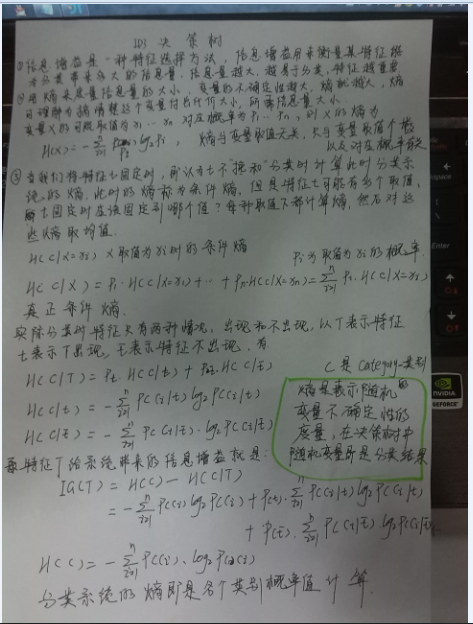 ID3 决策树
①信息增益是一种特征选择方法,信息增益用来衡量某特征能
为分类带来多大的信息量,信息量越大,越易于分类,特征越重要
②用熵来度量信息量的大小,变量的不确定性越大,熵就越大,熵
可理解为搞清楚这个变量付出代价大小,所需信息量大小
变量X的可能取值为x₁…xₙ 对应概率为p₁…pₙ,则X的熵为
H(X) = -∑ⁿᵢ₌₁ pᵢ log₂pᵢ , 熵与变量取值无关,只与变量取值个数
以及对应概率有关
③ 当我们将特征t固定时,
统的熵,此时的熵称为条件熵,但是特征t可能有多个取值,
t固定时应该固定到哪个值?每种取值下都计算熵,然后对这
些熵取均值.
H(C|X=xᵢ) X取值为xᵢ时的条件熵 pᵢ为取值为xᵢ的概率.
H(C|X) = p₁·H(C|X=x₁)+…+pₙ·H(C|X=xₙ)=∑ⁿᵢ₌₁ pᵢ·H(C|X=xᵢ)
真正条件熵.
实际分类时特征只有两种情况,出现和不出现,以T表示特征
t表示T出现,t̄表示特征不出现.有
H(C|T) = pₜ·H(C|t) + pt̄·H(C|t̄) C是category类别
H(C|t) = -∑ⁿᵢ₌₁ P(Cᵢ|t) log₂ P(Cᵢ|t)
H(C|t̄) = -∑ⁿᵢ₌₁ P(Cᵢ|t̄)·log₂ P(Cᵢ|t̄)
熵是表示随机
变量不确定性的
度量,在决策树中
随机变量即是分类结果
某特征T给系统带来的信息增益就是:
IG(T) = H(C) - H(C|T)
= -∑ⁿᵢ₌₁ P(Cᵢ) log₂ P(Cᵢ) + P(t)·∑ⁿᵢ₌₁ P(Cᵢ|t) log₂ P(Cᵢ|t)
+ P(t̄)·∑ⁿᵢ₌₁ P(Cᵢ|t̄) log₂ P(Cᵢ|t̄)
H(C) = -∑ⁿᵢ₌₁ P(Cᵢ)·log₂ P(Cᵢ)
分类系统的熵即是各个类别概率值计算.
Enter
NVIDIA
GEFORCE